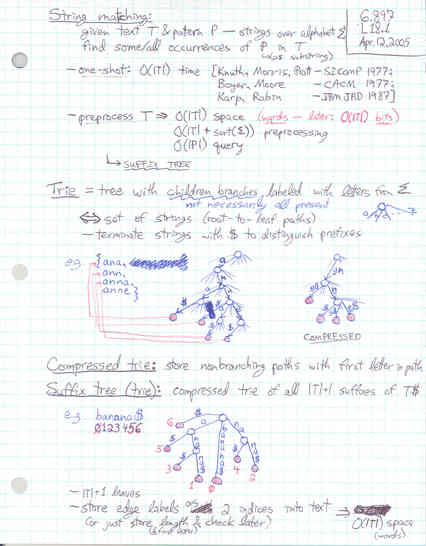 String matching:
6.897
L18.1
Apr. 12, 2005
given text T & pattern P — strings over alphabet Σ
find some/all occurrences of P in T
(as substring)
— one-shot: O(|T|) time [Knuth, Morris, Pratt — SICOMP 1977;
Boyer, Moore — CACM 1977;
Karp, Rabin — IBM JRD 1987]
— preprocess T ⇒ O(|T|) space (words — later: O(|T|) bits)
O(|T| + sort(Σ)) preprocessing
O(|P|) query
↳ SUFFIX TREE
Trie = tree with children branches labeled with letters from Σ
not necessarily all present
⇔ set of strings (root-to-leaf paths)
— terminate strings with $ to distinguish prefixes
e.g. {ana,
ann,
anna,
anne}
COMPRESSED
Compressed trie: store nonbranching paths with first letter in path
Suffix tree (trie): compressed trie of all |T|+1 suffixes of T$
e.g. banana$
0123456
6
5
3
1
0
4
2
— |T|+1 leaves
— store edge labels as 2 indices into text ⇒
O(|T|) space
(or just store length & check later)
(words)